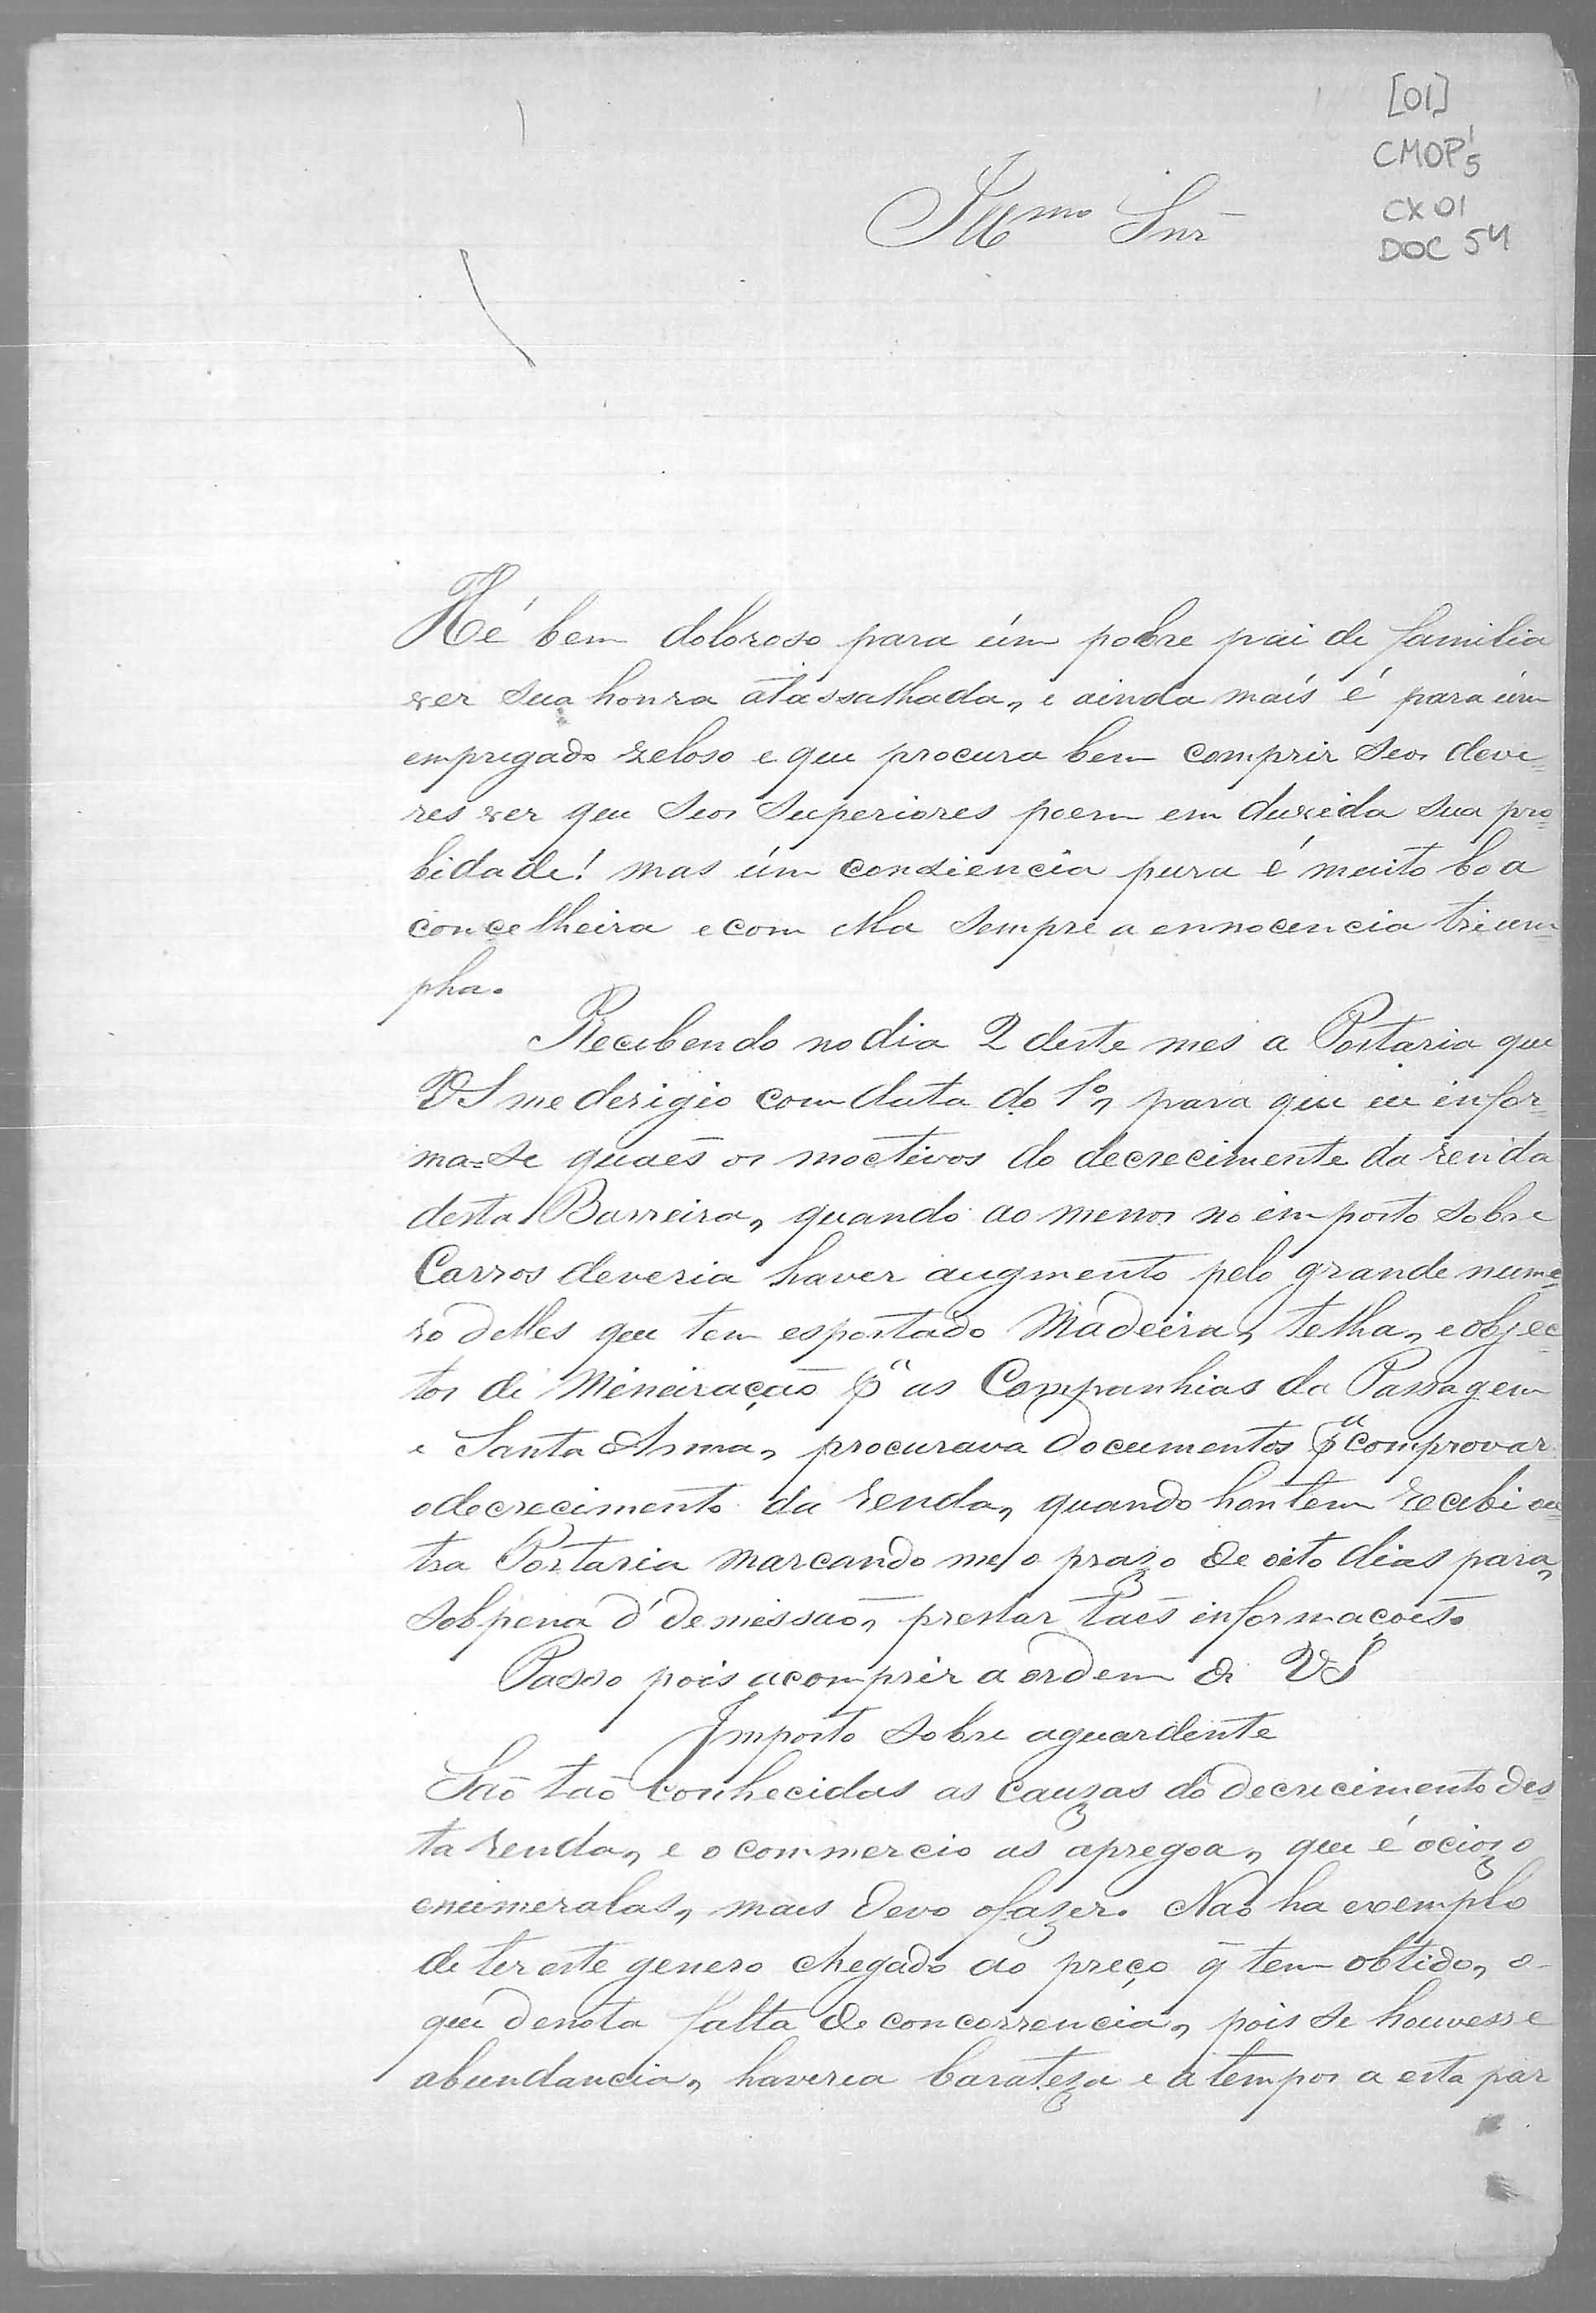 [01]
CMOP'5
CX 01
DOC 54
Illmo Snr
Hé bem doloroso para úm pobre pai de familia
ver sua honra atassalhada, e ainda mais é para úm
empregado zeloso e que procura bem comprir seos deve=
res ver que seos superiores poem em duvida sua pro=
bidade! mas úm consiencia pura é muito boa
concelheira e com ella sempre a ennocencia trium=
pha.
Recebendo no dia 2 deste mes a Portaria que
VS me derigio com data do 1º, para que eu infor=
ma=se quaes os moctivos do decrecimente da renda
desta Barreira, quando ao menos no imposto sobre
Carros deveria haver augmento pelo grande nume=
ro delles que tem esportado Madeira, telha, e objec=
tos de Mineiração pª as Companhias da Passagem
e Santa Anna, procurava documentos pª comprovar
o decrecimento da renda, quando hontem recebi ou=
tra Portaria marcando me o prazo de oito dias para,
sob pena d'demissão, prestar taes informaçoes.
Passo pois a comprir a ordem de VS
Imposto sobre aguardente
São tão conhecidas as cauzas do decrecimento des=
ta renda, e o commercio as apregoa, que é ociozo
enumeralas, mais devo o fazer. Não ha exemplo
de ter este genero chegado ao preço q̃ tem obtido, o
que denota falta de concorrencia, pois se houvesse
abundancia, haveria barateza e a tempos a esta par